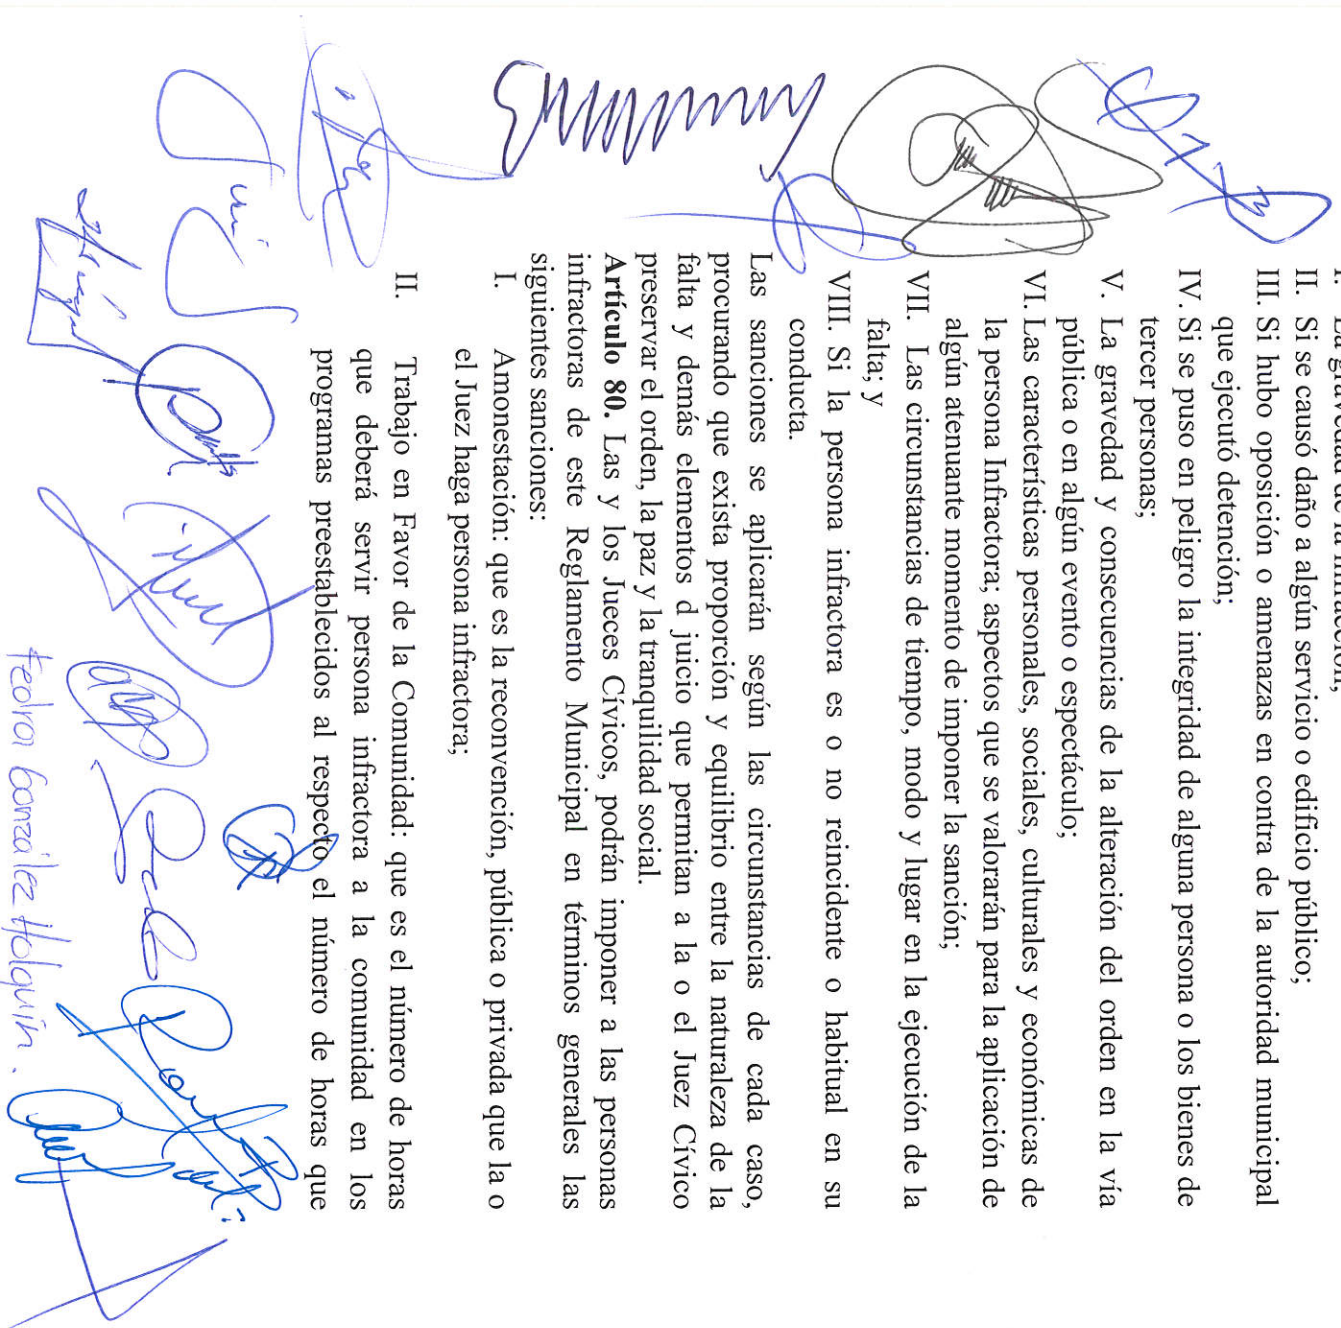 I. La gravedad de la infracción;
II. Si se causó daño a algún servicio o edificio público;
III. Si hubo oposición o amenazas en contra de la autoridad municipal
que ejecutó detención;
IV. Si se puso en peligro la integridad de alguna persona o los bienes de
tercer personas;
V. La gravedad y consecuencias de la alteración del orden en la vía
pública o en algún evento o espectáculo;
VI. Las características personales, sociales, culturales y económicas de
la persona Infractora; aspectos que se valorarán para la aplicación de
algún atenuante momento de imponer la sanción;
VII. Las circunstancias de tiempo, modo y lugar en la ejecución de la
falta; y
VIII. Si la persona infractora es o no reincidente o habitual en su
conducta.
Las sanciones se aplicarán según las circunstancias de cada caso,
procurando que exista proporción y equilibrio entre la naturaleza de la
falta y demás elementos d juicio que permitan a la o el Juez Cívico
preservar el orden, la paz y la tranquilidad social.
Artículo 80. Las y los Jueces Cívicos, podrán imponer a las personas
infractoras de este Reglamento Municipal en términos generales las
siguientes sanciones:
I. Amonestación: que es la reconvención, pública o privada que la o
el Juez haga persona infractora;
II. Trabajo en Favor de la Comunidad: que es el número de horas
que deberá servir persona infractora a la comunidad en los
programas preestablecidos al respecto el número de horas que
González Holguín.